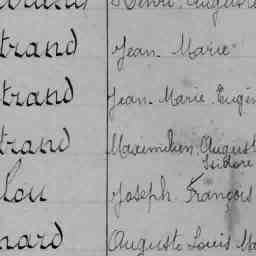 Henri Auguste
trand Jean Marie
trand Jean Marie Eugèn
trand Maximilien August
Isidore
lou Joseph François
nard Auguste Louis Ma